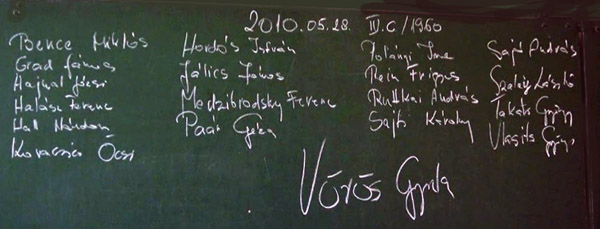 2010.05.28. IV.C/1960
Bence Miklós
Grad János
Hajnal Jócsi
Halász Ferenc
Hal Nándor
Kovacsics Öcsi
Hordós István
Jálics János
Medzibrodszky Ferenc
Paár Géza
Polányi Imre
Rein Frigyes
Ruttkai András
Sajti Károly
Sajó András
Szalay László
Takáts György
Vlasits György
Vörös Gyula